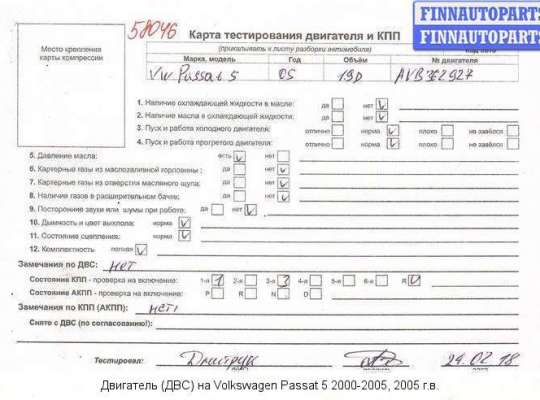 58046
Карта тестирования двигателя и КПП
FINNAUTOPARTS
FINNAUTOPARTS
Место крепления
карты компрессии
(прикалывать к листу разборки автомобиля)
Марка, модель Год Объём № двигателя
Vw Passat 5 05 1,9D AVB 762927
1. Наличие охлаждающей жидкости в масле: да нет
2. Наличие масла в охлаждающей жидкости: да нет
3. Пуск и работа холодного двигателя: отлично норма плохо не завёлся
4. Пуск и работа прогретого двигателя: отлично норма плохо не завёлся
5. Давление масла: есть нет
6. Картерные газы из маслозаливной горловины: да нет
7. Картерные газы из отверстия масляного щупа: да нет
8. Наличие газов в расширительном бачке: да нет
9. Посторонние звуки или шумы при работе: да нет
10. Дымность и цвет выхлопа: норма
11. Состояние сцепления: норма
12. Комплектность полная
Замечания по ДВС: нет
Состояние КПП - проверка на включение: 1-я 2-я 3-я 4-я 5-я 6-я R
Состояние АКПП - проверка на включение: P R N D
Замечания по КПП (АКПП): нет
Снято с ДВС (по согласованию!):
Тестировал: 24.02.18
Двигатель (ДВС) на Volkswagen Passat 5 2000-2005, 2005 г.в.